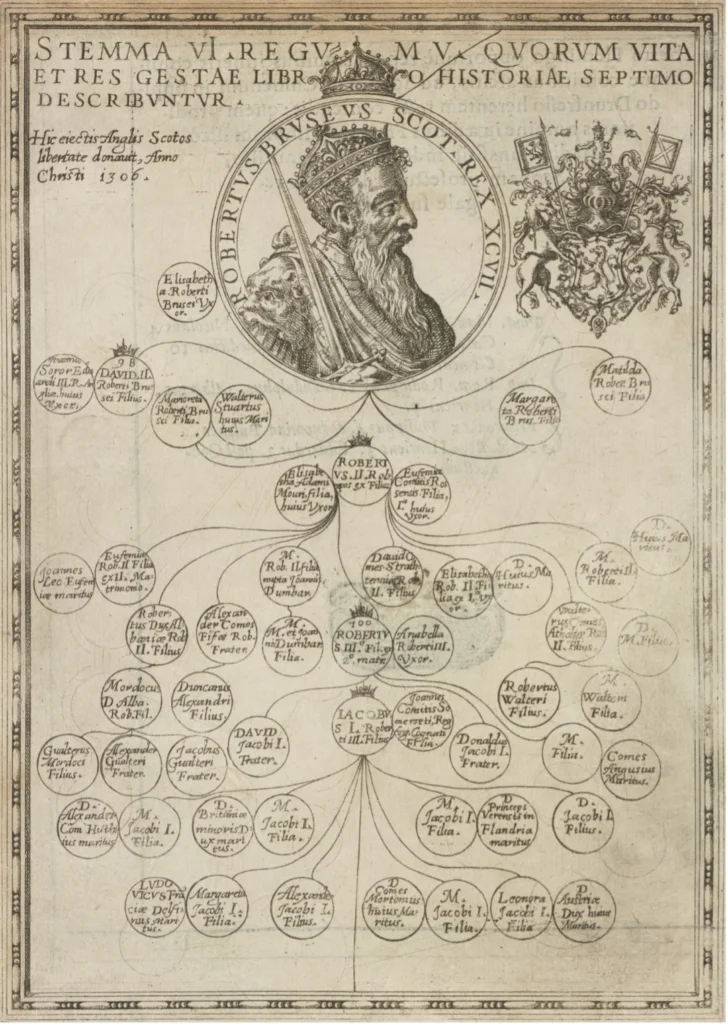 STEMMA VI. REGVM V. QVORVM VITA
ET RES GESTAE LIBRO HISTORIAE SEPTIMO
DESCRIBVNTVR.
Hic eiectis Anglis Scotos
libertate donauit, Anno
Christi 1306.
ROBERTVS BRVSEVS SCOT. REX XCVII.
Elisabeth
a. Roberti
Brusei Vx
or.
Soror Edu
ardi III. R. An
gliæ, huius
Vxor.
98
DAVID. II.
Roberti Bru
sei Filius.
Marioreta
Roberti Bru
sci Filia.
Walterus
Stuartus
huius Mari
tus.
Margare
ta Roberti
Brus. Filia
Matilda
Rober. Bru
sei Filia
Elisabe
tha Adami
Mouri filia,
huius Vxor
ROBERT
VS. II. Rob
ex Filia
Eufemia
Comitis Ros
sensis Filia,
huius
Vxor.
Joannes
Leo Eufem
iæ maritus
Eufemia
Rob. II Filia
ex II. Ma
trimonio.
M.
Rob. II filia
nupta Joanni
Dumbar
Dauid Co
mes Strath
erniæ Rob.
II. Filius
Elisabeth
Rob. II. Fi
lia ex I. Vx
or.
D.
Huius Ma
ritus.
M.
Roberti II.
Filia.
D.
Huius Ma
ritus.
Rober
tus Dux Al
baniæ Rob
II. Filius
Alexan
der Comes
Fifæ Rob.
Frater
M.
M. et Joan
ni Dumbar
Filia.
100
ROBERTV
S III. Fil. ex
2. matr.
Anabella
Roberti III.
Vxor.
Walte
rus Comes
Atholiæ Rob
II. Filius.
D.
M. Filius.
Mordocus
D Alba.
Rob. Fil.
Duncanus
Alexandri
Filius.
IACOBV
S I. Rober
ti III. Filius
Joanna
Comitis So
merseti, Reg
Cognati
Filia.
Robertus
Walteri
Filius.
M.
Walteri
Filia.
Gualterus
Mordoci
Filius.
Alexander
Gualteri
Frater.
Jacobus
Gualteri
Frater.
DAVID.
Jacobi I.
Frater.
Donaldus
Jacobi I.
Frater.
M.
Filia.
Comes
Angusius
Maritus.
D.
Alexander
Com. Huth
ius maritus
M.
Jacobi I.
Filia.
D.
Britaniæ
minoris D
ux mari
tus.
M.
Jacobi I.
Filia.
M.
Jacobi I.
Filia.
D
Princeps
Verensis in
Flandria
maritus
D.
Jacobi I.
Filius.
LVDO
VICVS Fra
ciæ Delfi
nus Mari
tus.
Margareta
Jacobi I.
Filia.
Alexander
Jacobi I.
Filius.
D
Comes
Mortonius
huius Ma
ritus.
M.
Jacobi I.
Filia.
Leonora
Jacobi I.
Filia
D
Austriæ
Dux huius
Maritus.